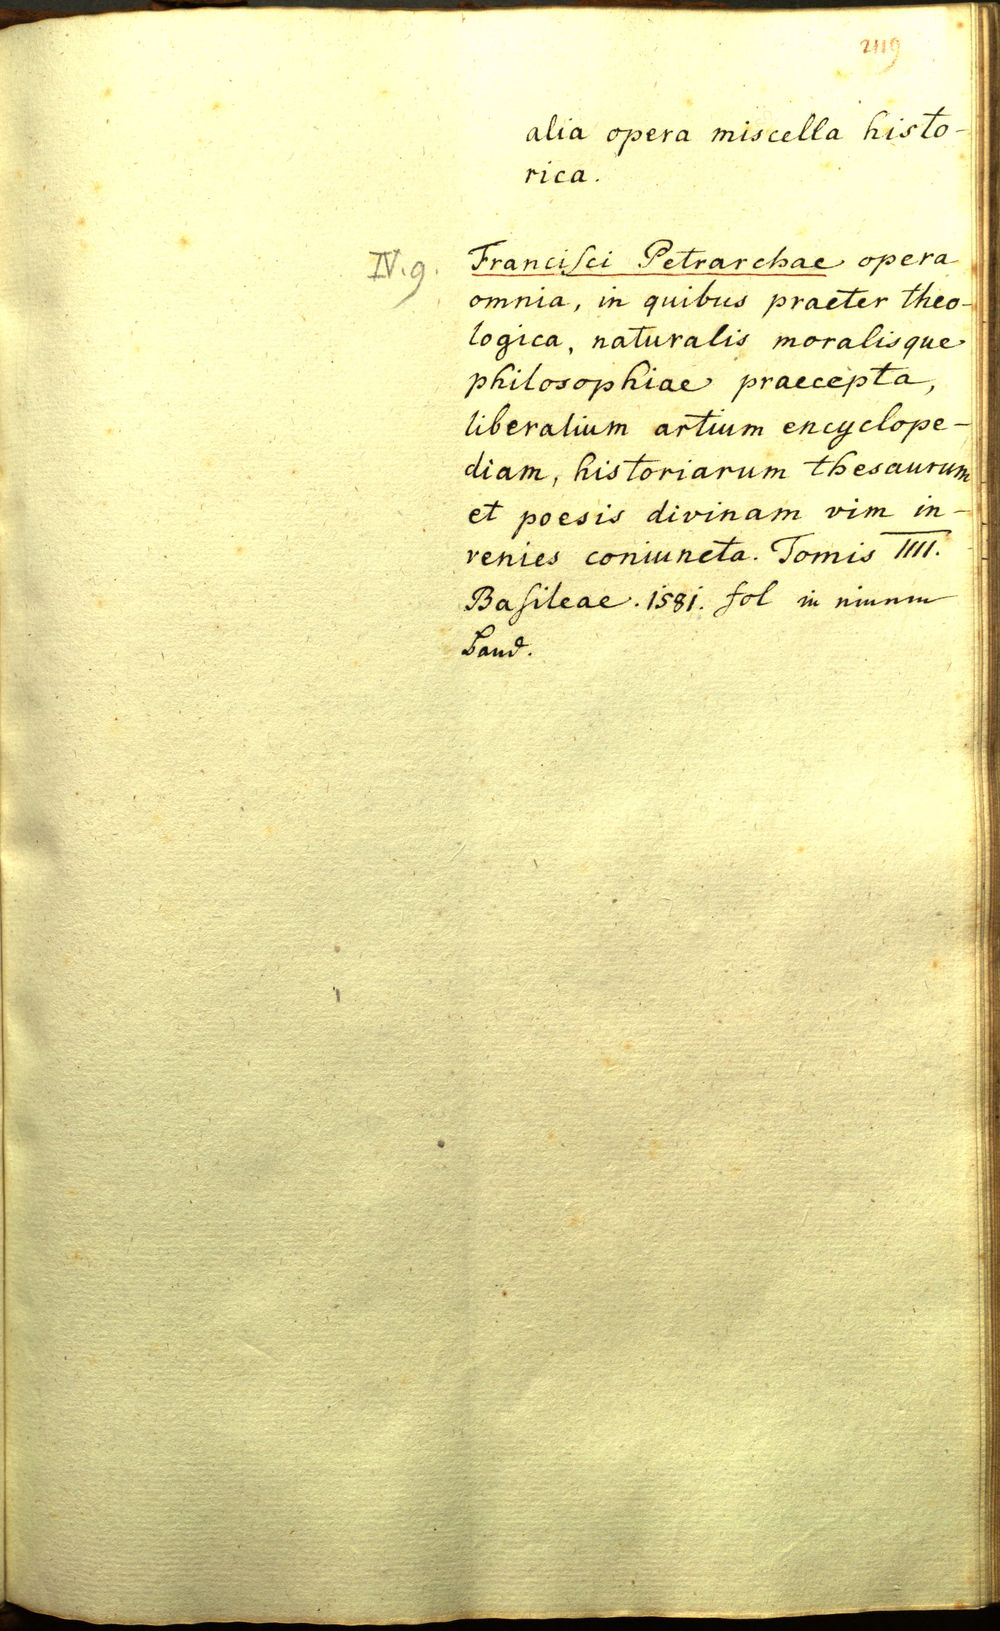 2119
alia opera miscella histo-
rica.
IV. 9. Franciſci Petrarchae opera
omnia, in quibus praeter theo-
logica, naturalis moralisque
philosophiae praecepta,
liberalium artium encyclope-
diam, historiarum thesaurum
et poesis divinam vim in-
venies coniuncta. Tomis IIII.
Baſileae. 1581. fol in einem
Band.